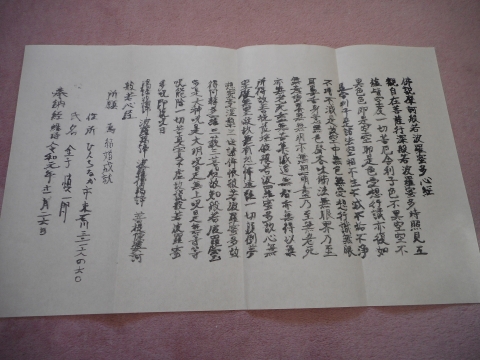 佛説摩訶般若波羅蜜多心経
観自在菩薩行深般若波羅蜜多時照見五
蘊皆空度一切苦厄舎利子色不異空空不
異色色即是空空即是色受想行識亦復如
是舎利子是諸法空相不生不滅不垢不浄
不増不減是故空中無色無受想行識無眼
耳鼻舌身意無色声香味触法無眼界乃至
無意識界無無明亦無無明尽乃至無老死
亦無老死尽無苦集滅道無智亦無得以無
所得故菩提薩埵依般若波羅蜜多故心無
罣礙無罣礙故無有恐怖遠離一切顛倒夢
想究竟涅槃三世諸佛依般若波羅蜜多故
得阿耨多羅三藐三菩提故知般若波羅蜜
多是大神呪是大明呪是無上呪是無等等
呪能除一切苦真実不虚故説般若波羅蜜
多呪即説呪曰
羯諦羯諦 波羅羯諦 波羅僧羯諦 菩提薩婆訶
般若心経
所願 為 成就
住所 ひたちなか市
氏名 金子
奉納経